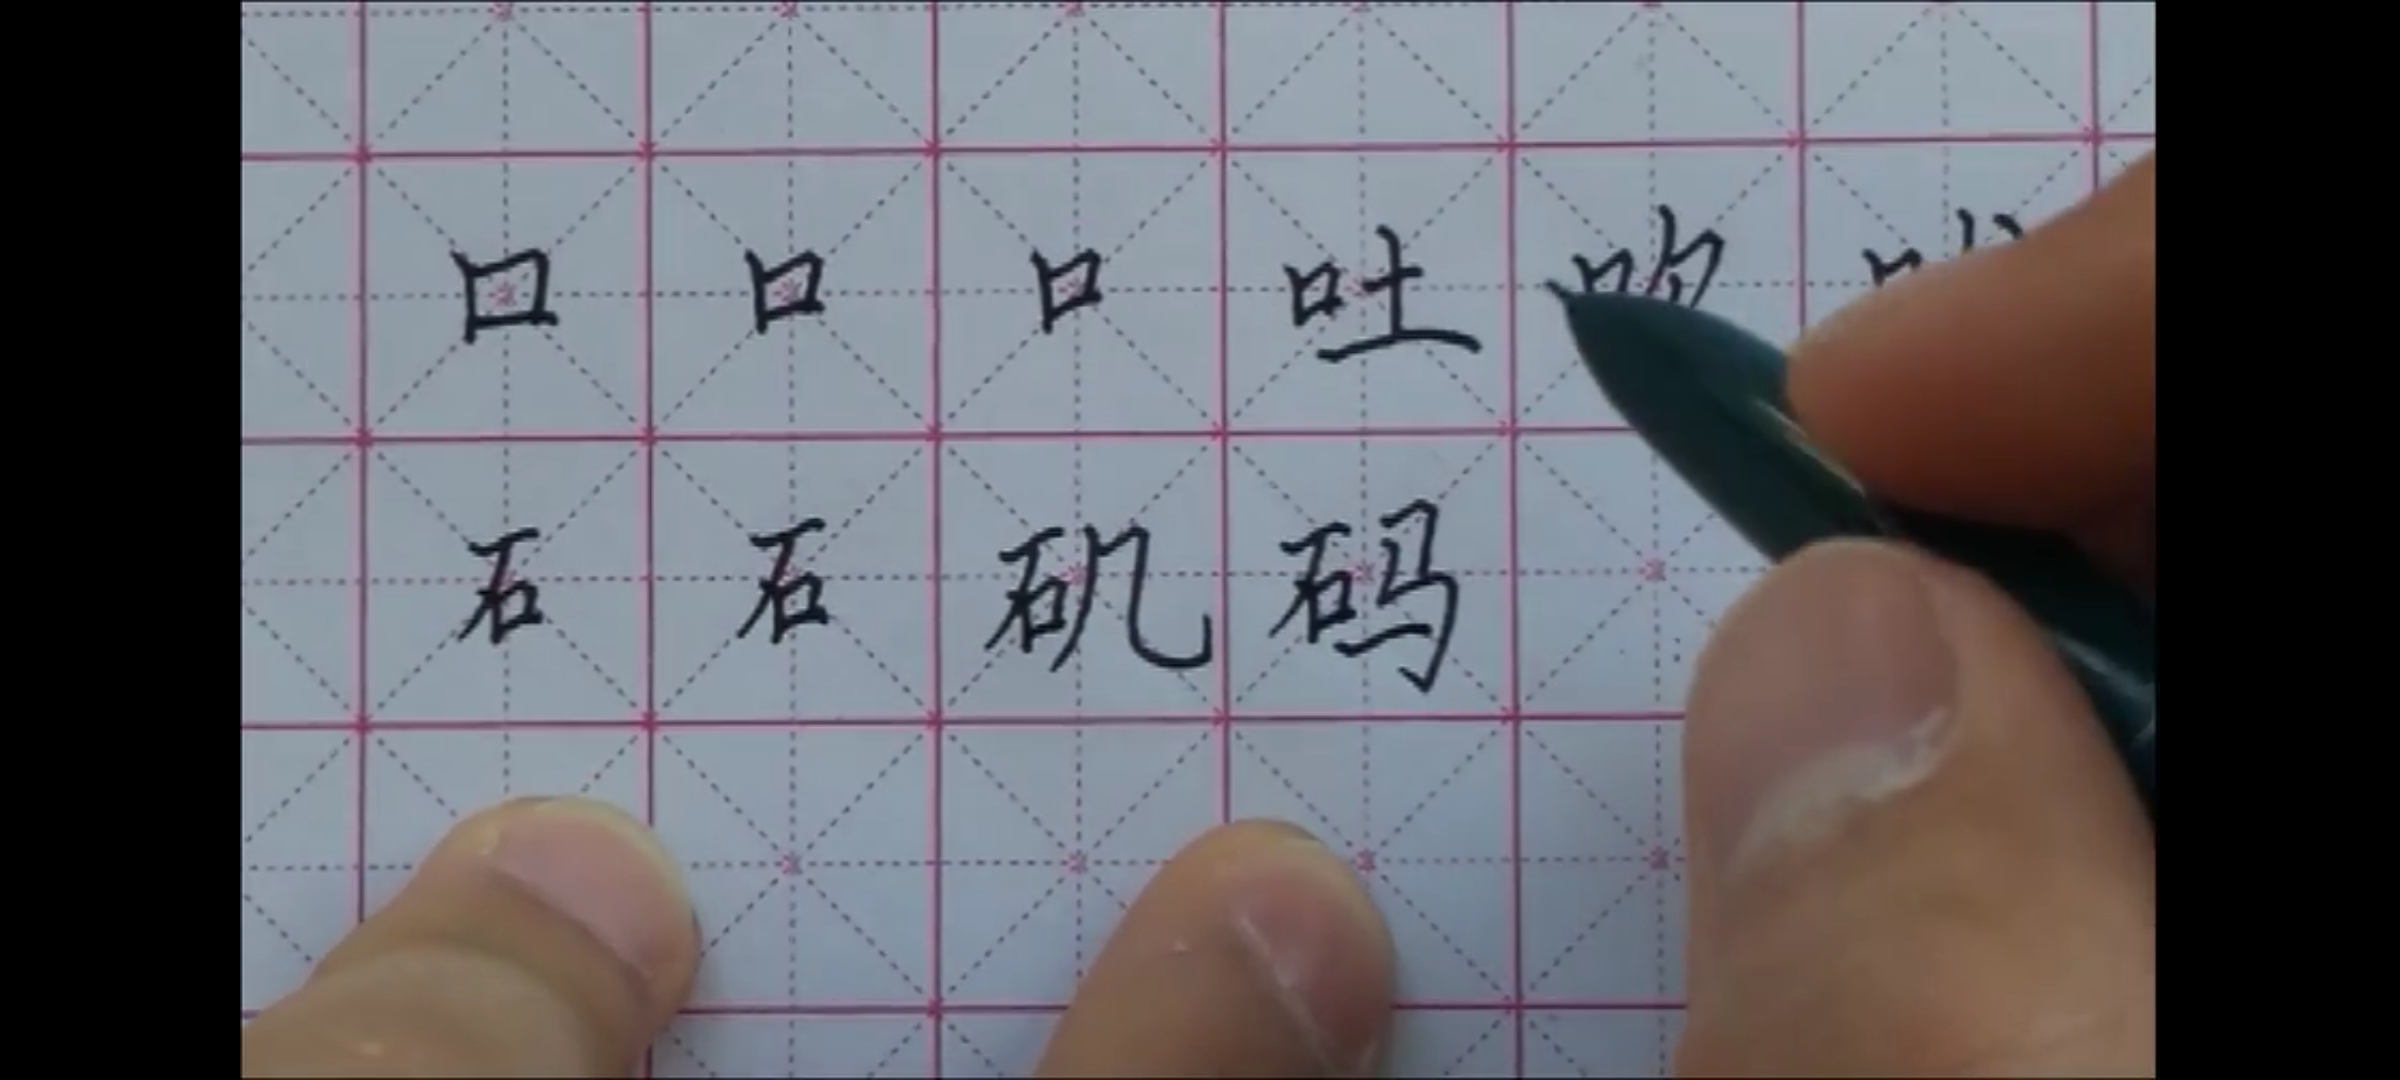 口口口吐吹
石石矶码